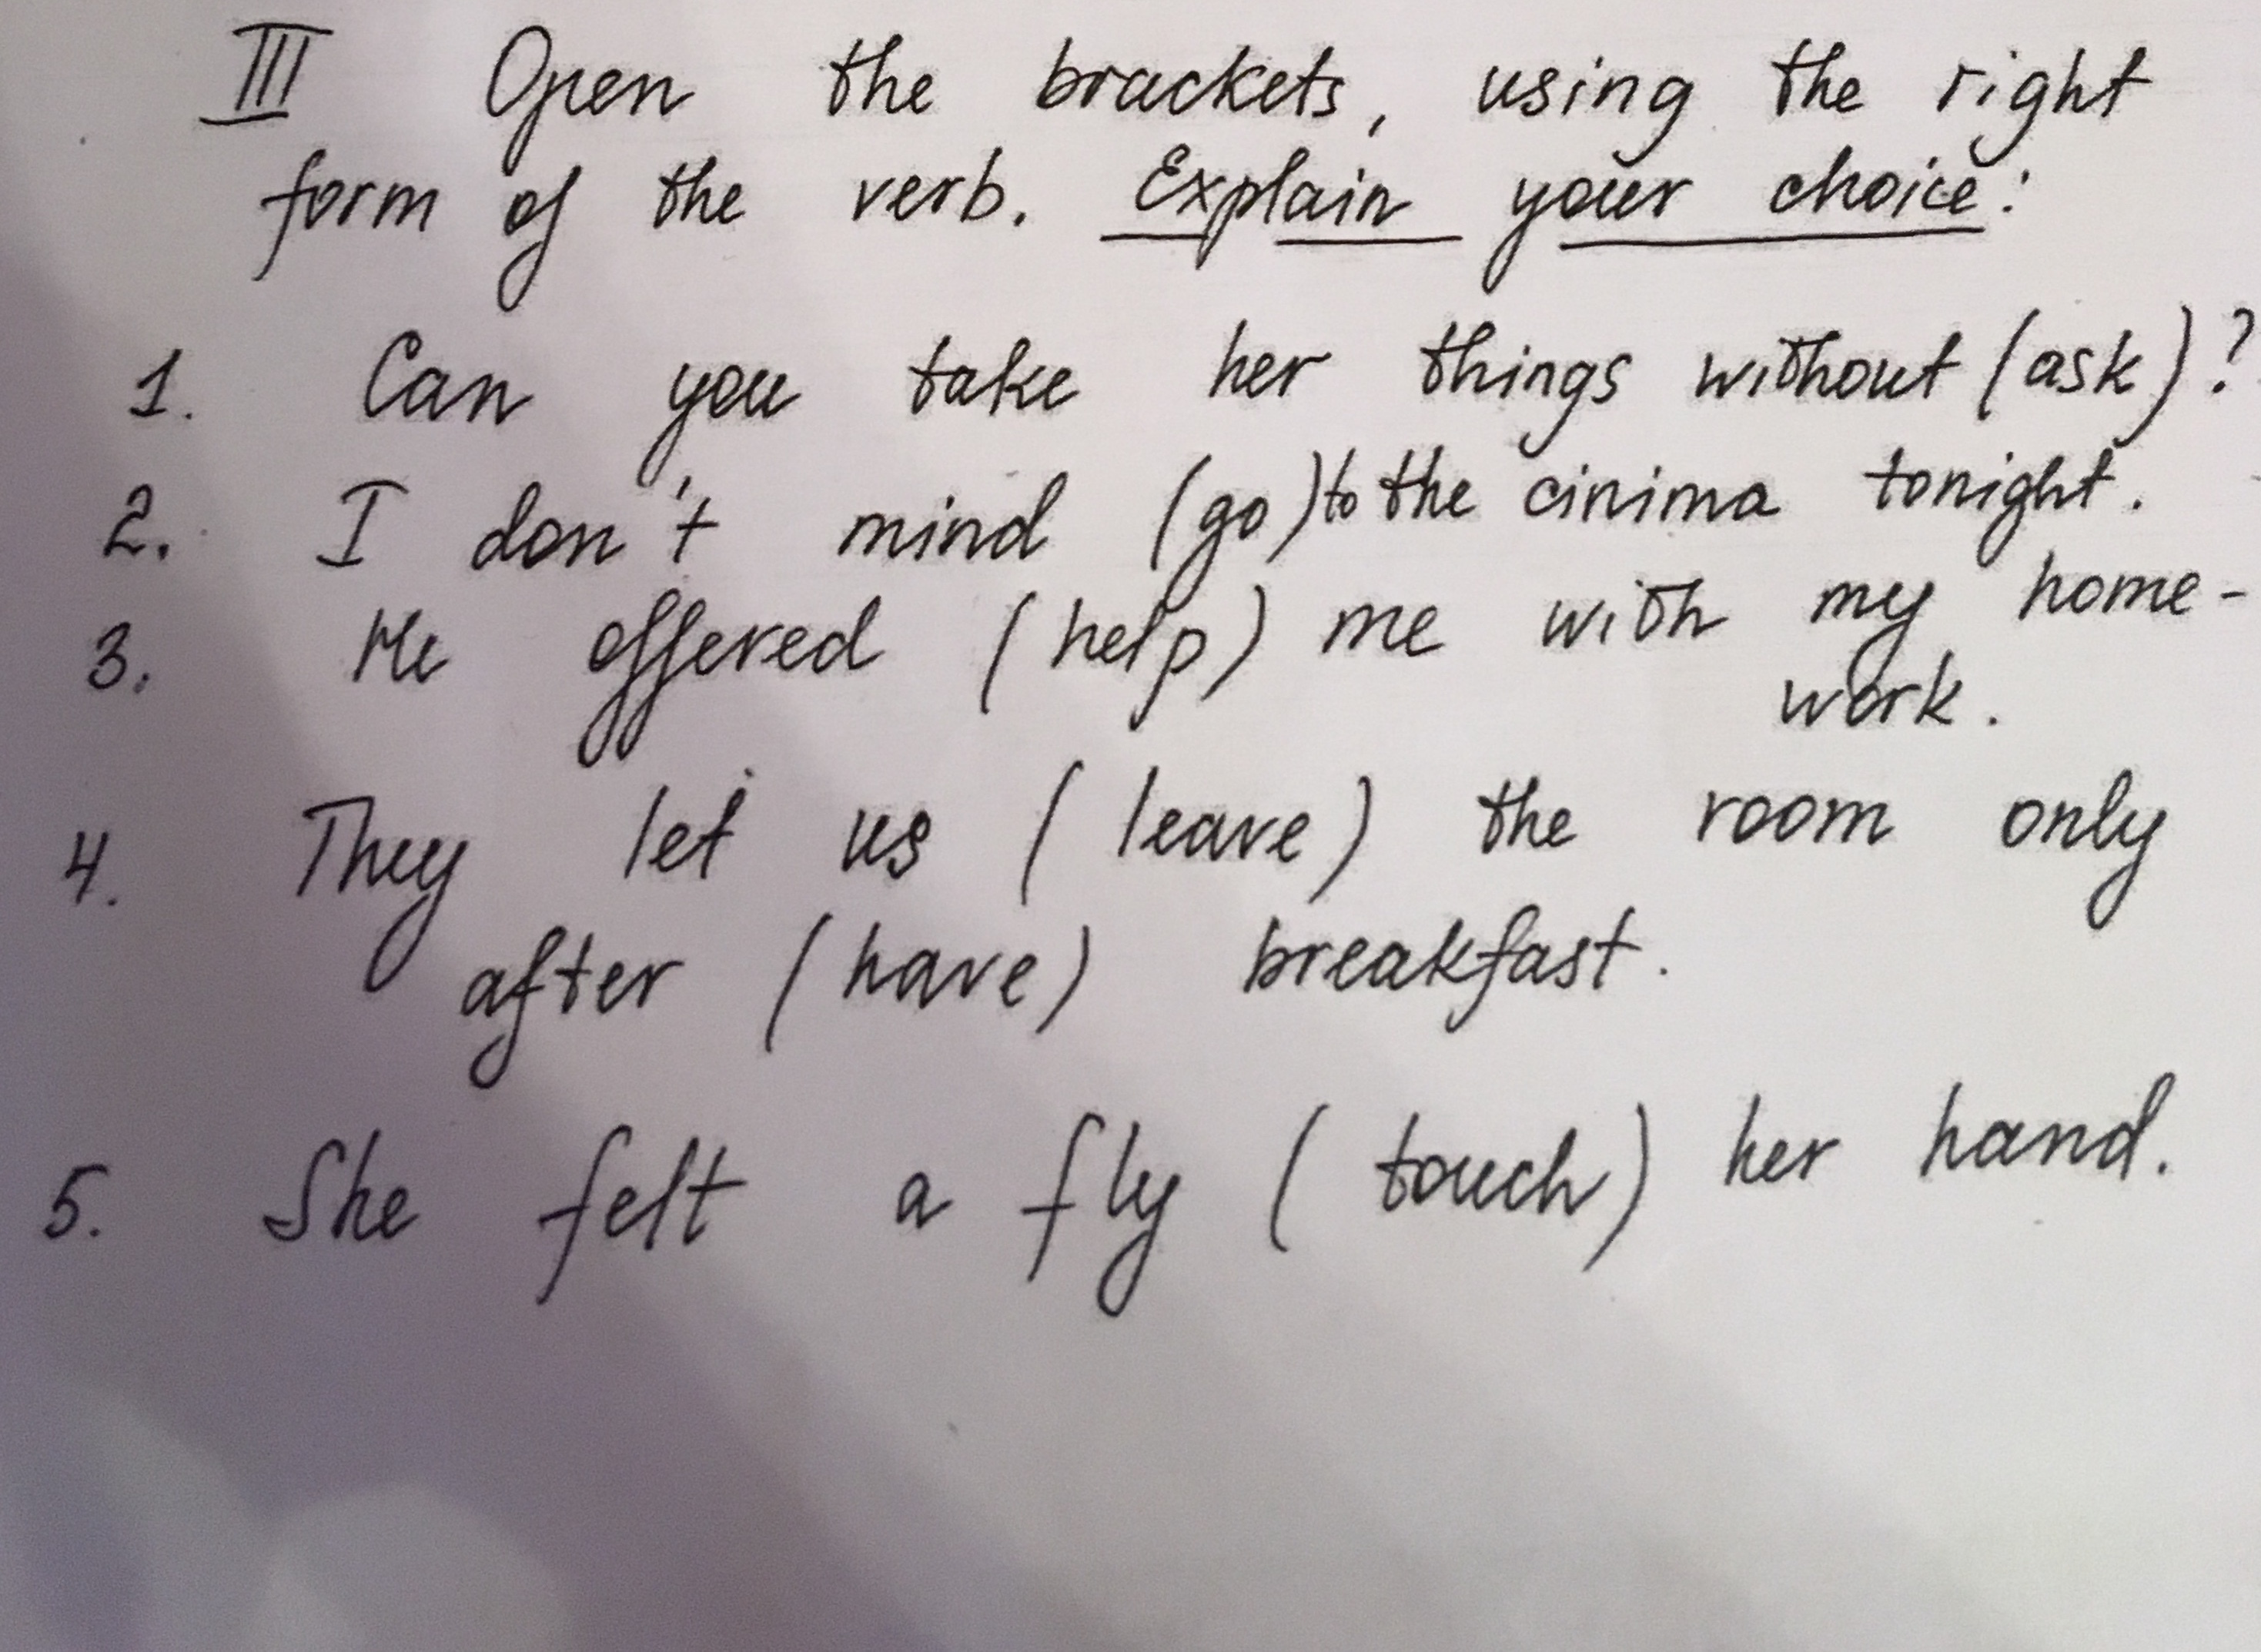 III Open the brackets, using the right
form of the verb. Explain your choice:
1. Can you take her things without (ask)?
2. I don't mind (go) to the cinima tonight.
3. He offered (help) me with my home-
work.
4. They let us (leave) the room only
after (have) breakfast.
5. She felt a fly (touch) her hand.